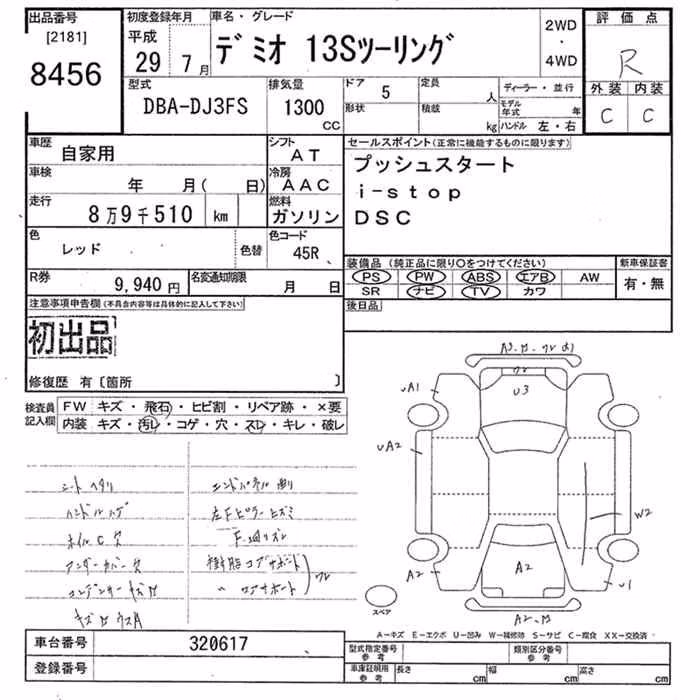 出品番号
[2181]
8456
初度登録年月
平成
29 7月
車名・グレード
デミオ 13Sツーリング
2WD
・
4WD
評価点
R
外装 内装
C C
型式
DBA-DJ3FS
排気量
1300
CC
ドア
5
定員
人
形状
積載
kg
ディーラー・並行
モデル年式 年
ハンドル 左・右
車歴
自家用
シフト
AT
車検
年 月( 日)
冷房
AAC
走行
8万9千510 km
燃料
ガソリン
色
レッド
色替
色コード
45R
R券
9,940円
名変通知期限
月 日
セールスポイント(正常に機能するものに限ります)
プッシュスタート
i-stop
DSC
装備品(純正品に限り○をつけてください)
PS PW ABS エアB AW
SR ナビ TV カワ
新車保証書
有・無
後日品
注意事項申告欄(不具合内容等は具体的に記入して下さい)
初出品
修復歴 有〔箇所 〕
検査員記入欄
FW キズ・飛石・ヒビ割・リペア跡・×要
内装 キズ・汚レ・コゲ・穴・スレ・キレ・破レ
シートヘタリ
ハンドルハゲ
ホイルCス
アンダーカバーヌ
コンデンサーキズ
エンドパネル曲り
左Fピラーヒズミ
樹脂コアサポート
〃 ロアサポート
ワレ
U3
uA1
uA2
W2
A2
A2
u1
スペア
A-キズ E-エクボ U-凹み W-補修跡 S-サビ C-腐食 XX-交換済
車台番号 320617
登録番号
型式指定番号
参考
類別区分番号
参考
車庫証明用
参考
長さ cm 幅 cm 高さ cm